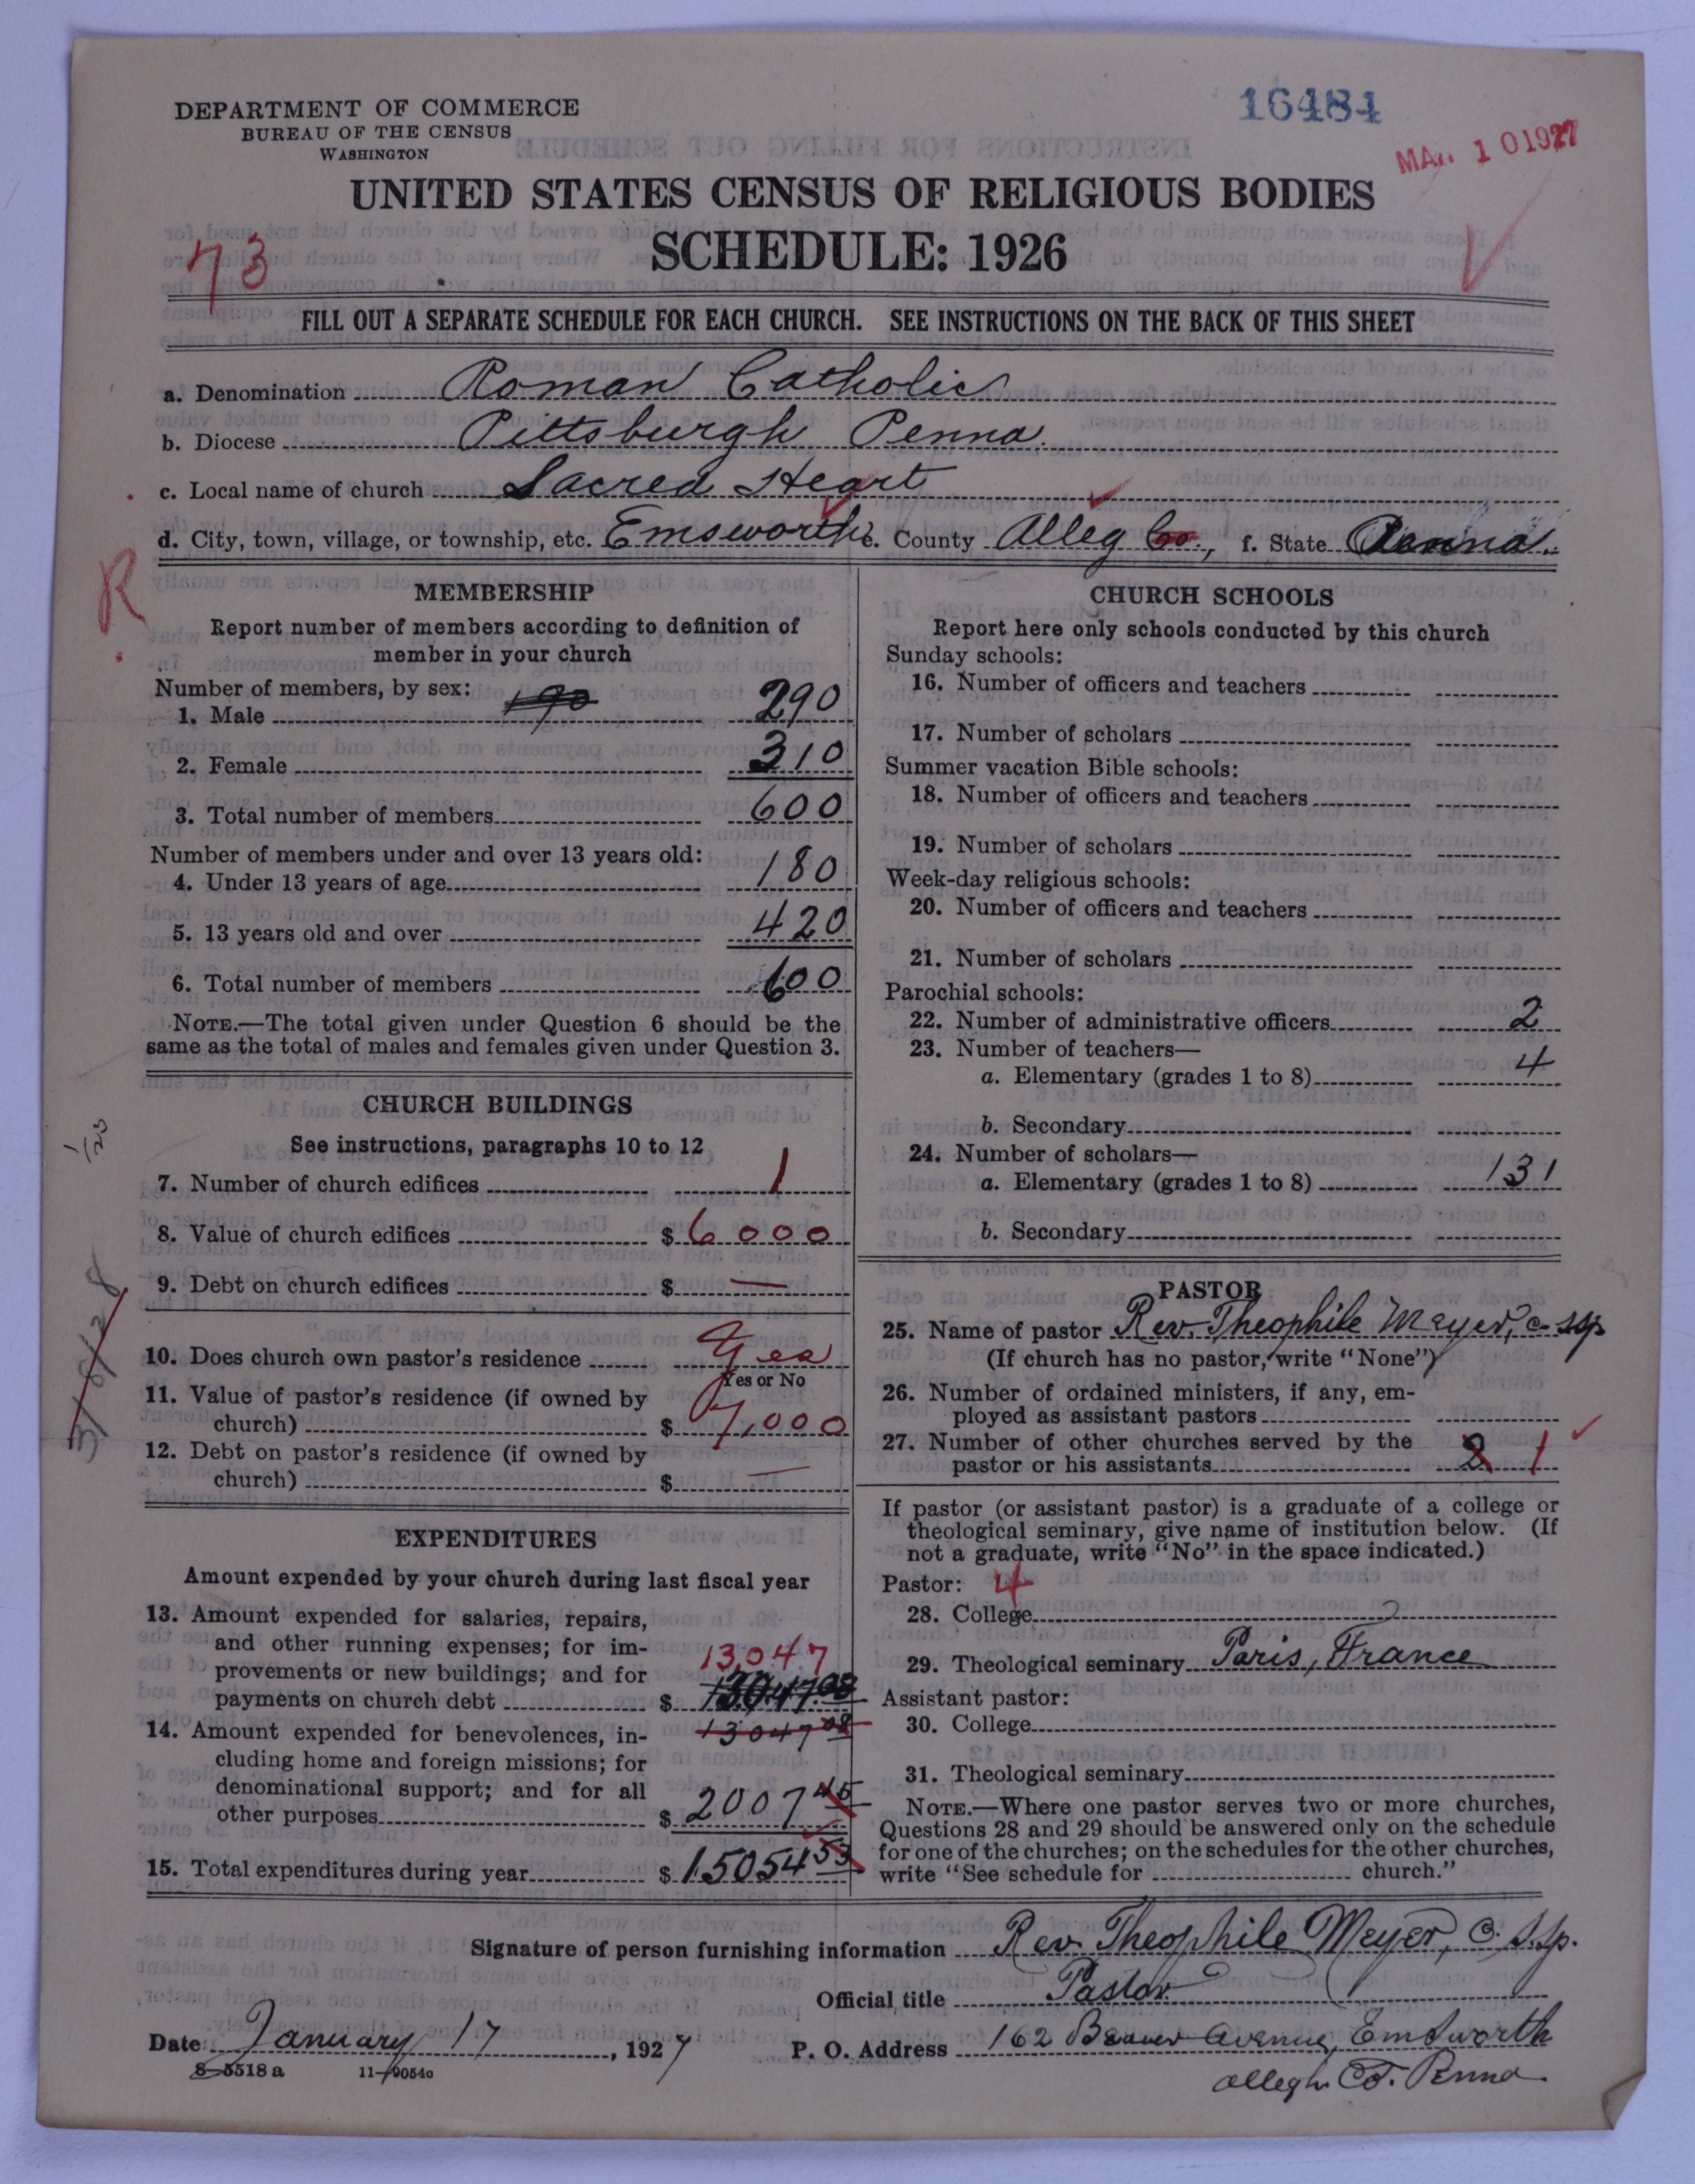 DEPARTMENT OF COMMERCE
BUREAU OF THE CENSUS
WASHINGTON
16484
MAR 10 1927
UNITED STATES CENSUS OF RELIGIOUS BODIES
SCHEDULE: 1926
73
FILL OUT A SEPARATE SCHEDULE FOR EACH CHURCH. SEE INSTRUCTIONS ON THE BACK OF THIS SHEET
a. Denomination Roman Catholic
b. Diocese Pittsburgh Penna.
c. Local name of church Sacred Heart
d. City, town, village, or township, etc. Emsworth e. County Alleg Co., f. State Penna.
R
MEMBERSHIP
Report number of members according to definition of
member in your church
Number of members, by sex: 190
1. Male 290
2. Female 310
3. Total number of members 600
Number of members under and over 13 years old:
4. Under 13 years of age 180
5. 13 years old and over 420
6. Total number of members 600
NOTE.—The total given under Question 6 should be the
same as the total of males and females given under Question 3.
CHURCH BUILDINGS
See instructions, paragraphs 10 to 12
7. Number of church edifices 1
8. Value of church edifices $ 6000
9. Debt on church edifices $ —
10. Does church own pastor's residence Yes
Yes or No
11. Value of pastor's residence (if owned by
church) $ 7,000
12. Debt on pastor's residence (if owned by
church) $ —
EXPENDITURES
Amount expended by your church during last fiscal year
13. Amount expended for salaries, repairs,
and other running expenses; for im-
provements or new buildings; and for 13,047
payments on church debt $ 13047.08
14. Amount expended for benevolences, in- 13047 08
cluding home and foreign missions; for
denominational support; and for all
other purposes $ 2007 45
15. Total expenditures during year $ 15054 53
CHURCH SCHOOLS
Report here only schools conducted by this church
Sunday schools:
16. Number of officers and teachers
17. Number of scholars
Summer vacation Bible schools:
18. Number of officers and teachers
19. Number of scholars
Week-day religious schools:
20. Number of officers and teachers
21. Number of scholars
Parochial schools:
22. Number of administrative officers 2
23. Number of teachers—
a. Elementary (grades 1 to 8) 4
b. Secondary
24. Number of scholars—
a. Elementary (grades 1 to 8) 131
b. Secondary
PASTOR
25. Name of pastor Rev. Theophile Meyer, c. ssp
(If church has no pastor, write "None")
26. Number of ordained ministers, if any, em-
ployed as assistant pastors
27. Number of other churches served by the
pastor or his assistants 2 1
If pastor (or assistant pastor) is a graduate of a college or
theological seminary, give name of institution below. (If
not a graduate, write "No" in the space indicated.)
Pastor: 4
28. College
29. Theological seminary Paris, France
Assistant pastor:
30. College
31. Theological seminary
NOTE.—Where one pastor serves two or more churches,
Questions 28 and 29 should be answered only on the schedule
for one of the churches; on the schedules for the other churches,
write "See schedule for church."
Signature of person furnishing information Rev. Theophile Meyer, C. S.Sp.
Official title Pastor
Date January 17, 1927 P. O. Address 162 Beaver Avenue, Emsworth
Allegh. Co. Penna.
8-5518 a 11-9054o